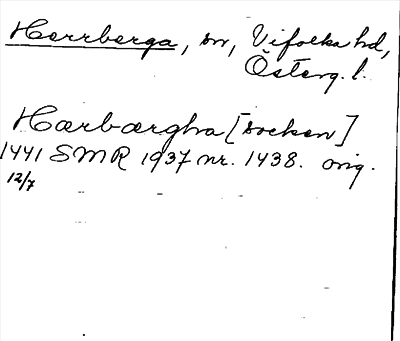 Herrberga, sn, Vifolka hd,
Österg. l.
Hærbærgha [socken]
1441 SMR 1937 nr. 1438. orig.
12/7